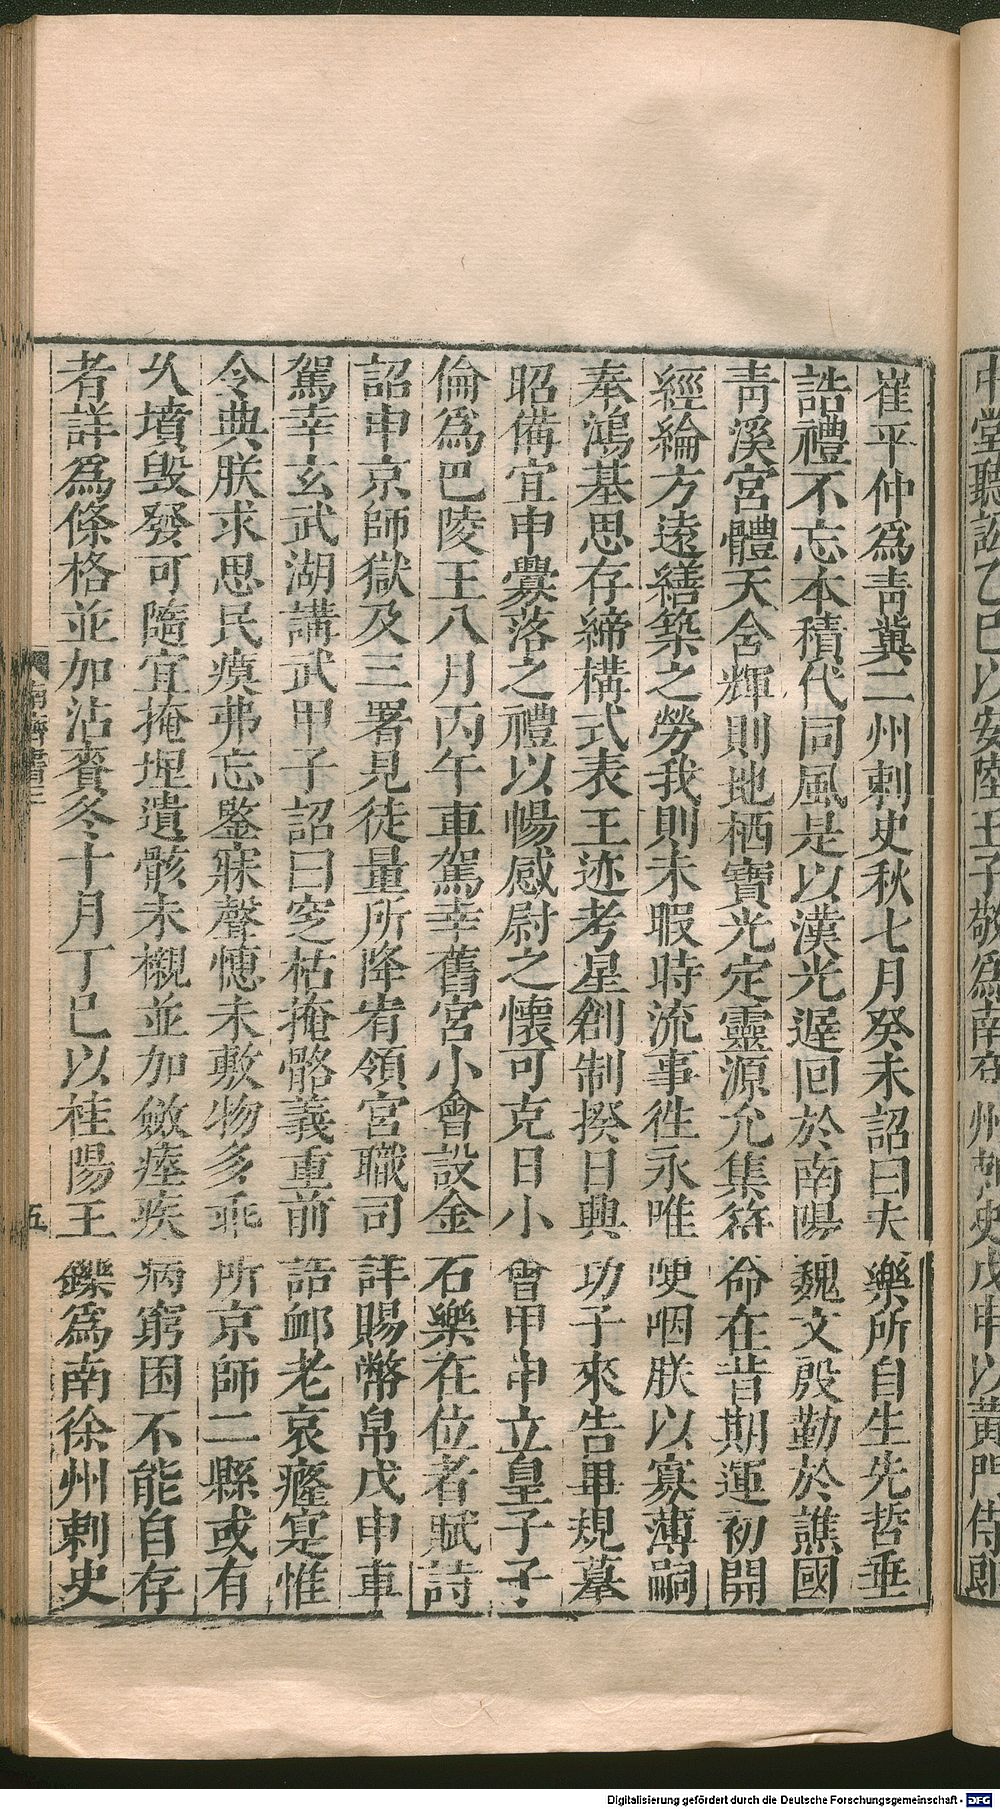 崔平仲爲靑冀二州刺史秋七月癸未詔曰夫樂所自生先哲垂
誥禮不忘本積代同風是以漢光遲回於南陽魏文殷勤於譙國
靑溪宮體天含輝則地栖寶光定靈源允集符命在昔期運初開
經綸方遠繕築之勞我則未暇時流事徃永唯哽咽朕以寡薄嗣
奉鴻基思存締構式表王迹考星創制揆日興功子來告畢規摹
昭備宜申釁落之禮以暢感尉之懷可克日小會甲申立皇子子
倫爲巴陵王八月丙午車駕幸舊宮小會設金石樂在位者賦詩
詔申京師獄及三署見徒量所降宥領宮職司詳賜幣帛戊申車
駕幸玄武湖講武甲子詔曰窆枯掩骼義重前誥卹老哀癃寔惟
令典朕求思民瘼弗忘鑒寐聲憓未敷物多乖所京師二縣或有
乆墳毀發可隨宜掩埋遺骸未櫬並加斂瘞疾病窮困不能自存
者詳爲條格並加沾賚冬十月丁巳以桂陽王鑠爲南徐州刺史
南齊書三
五
中堂聽訟乙巳以安陸王子敬爲南兖州刺史戊申以黃門侍郎
Digitalisierung gefördert durch die Deutsche Forschungsgemeinschaft - DFG